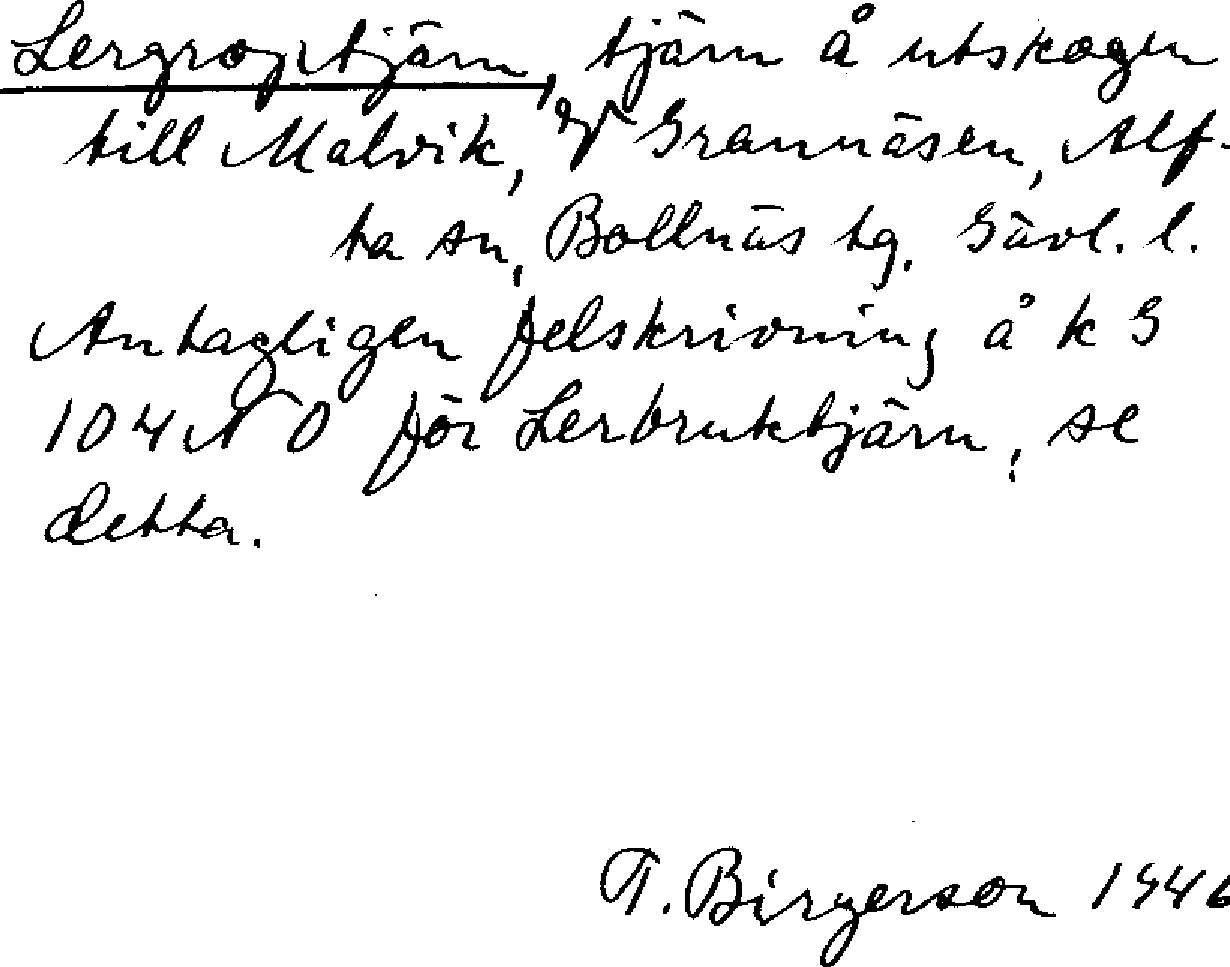 Lergroptjärn, tjärn å utskogen
till Malvik, Grannäsen, Alf-
ta sn, Bollnäs tg. Gävl. l.
Antagligen felskrivning å k G
104 NO för Lerbruktjärn, se
detta.
T. Birgerson 1946